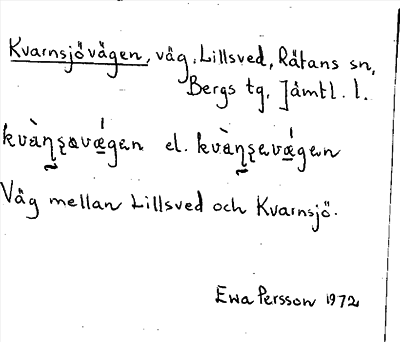 Kvarnsjövägen, väg, Lillsved, Rätans sn,
Bergs tg, Jämtl. l.
el.
Väg mellan Lillsved och Kvarnsjö.
Ewa Persson 1972